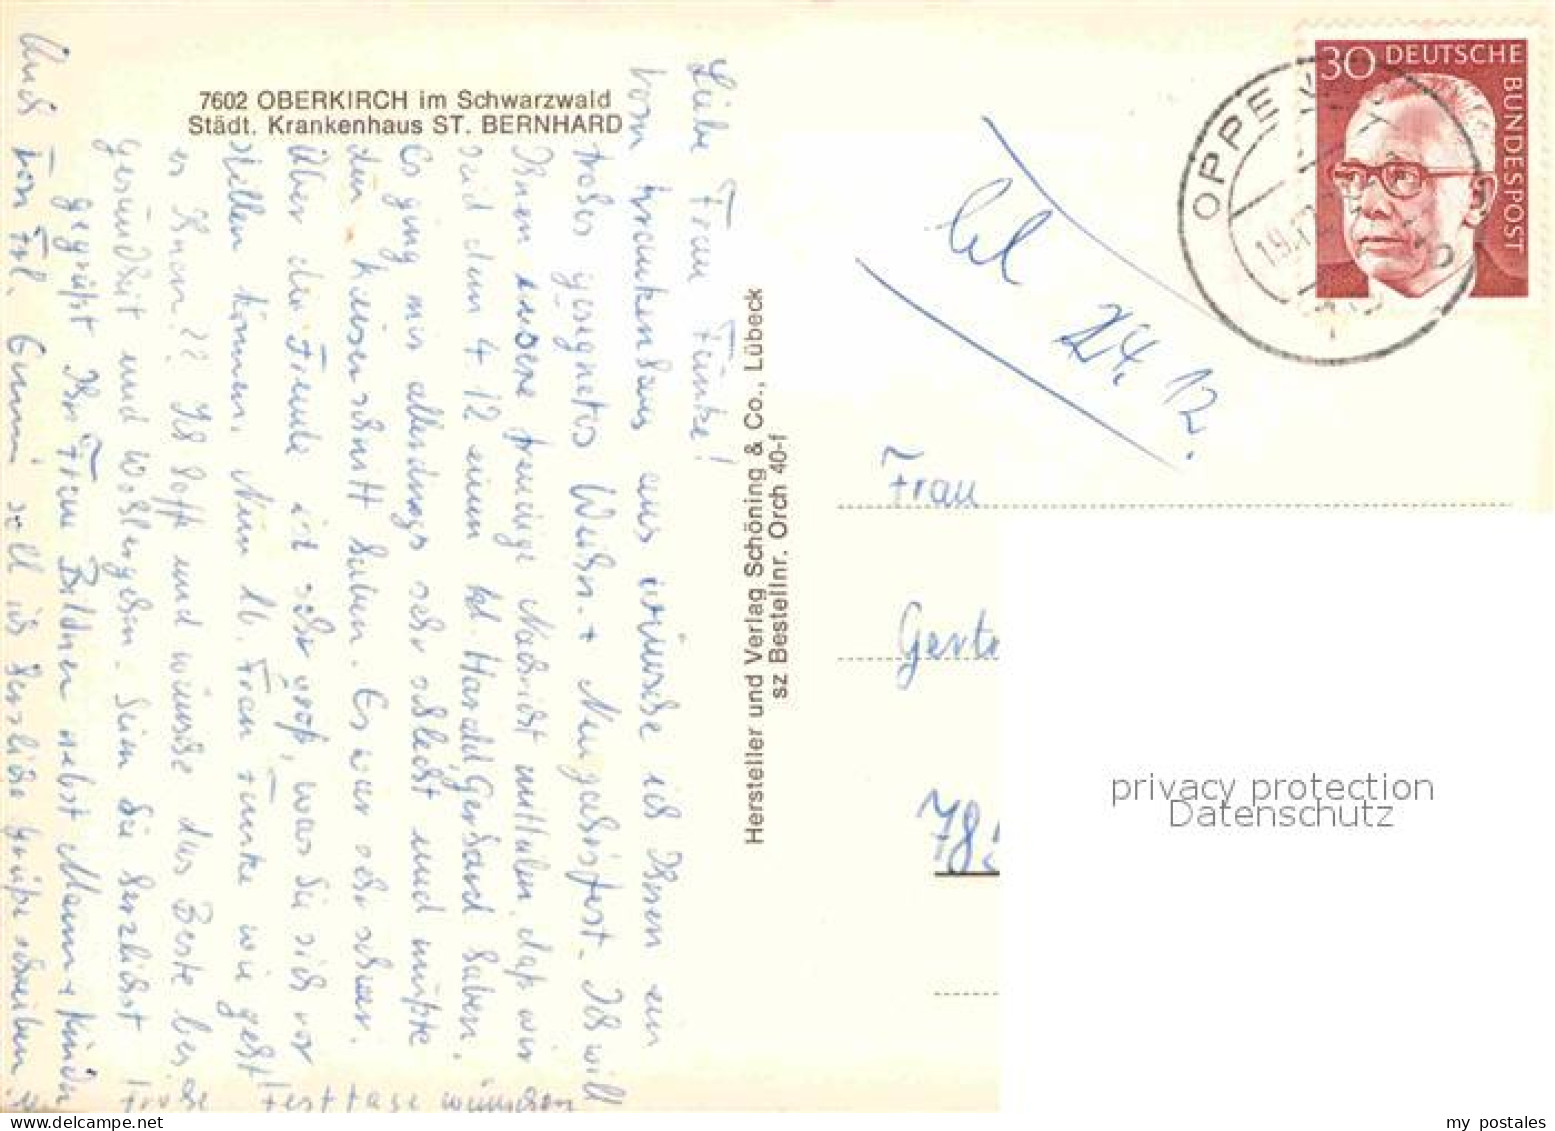 7602 OBERKIRCH im Schwarzwald
Städt. Krankenhaus ST. BERNHARD
Liebe Frau Funke!
Vom Krankenhaus aus wünsche ich Ihnen ein
frohes gesegnetes Weihn. + Neujahrsfest. Ich will
Ihnen unsere freudige Nachricht mitteilen, daß wir
seit dem 4.12 einen kl. Harald, Gerhard haben.
Es ging mir allerdings sehr schlecht und mußte
den Kaiserschnitt haben. Es war sehr schwer.
Aber die Freude ist sehr groß, was Sie sich vor
stellen können. Nun lb. Frau Funke wie geht
es Ihnen?? Ich hoffe und wünsche das Beste bei
Gesundheit und Wohlergehen. Seien Sie herzlichst
gegrüßt Ihre Frau nebst Mann + Kinder
Auch von Frl. soll ich herzliche Grüße schreiben u.
frohe Festtage wünschen
Hersteller und Verlag Schöning & Co., Lübeck
sz Bestellnr. Orch 40-f
30 DEUTSCHE
BUNDESPOST
OPPENAU
24. 12.
Frau
Gertr
78
privacy protection
Datenschutz
my postales